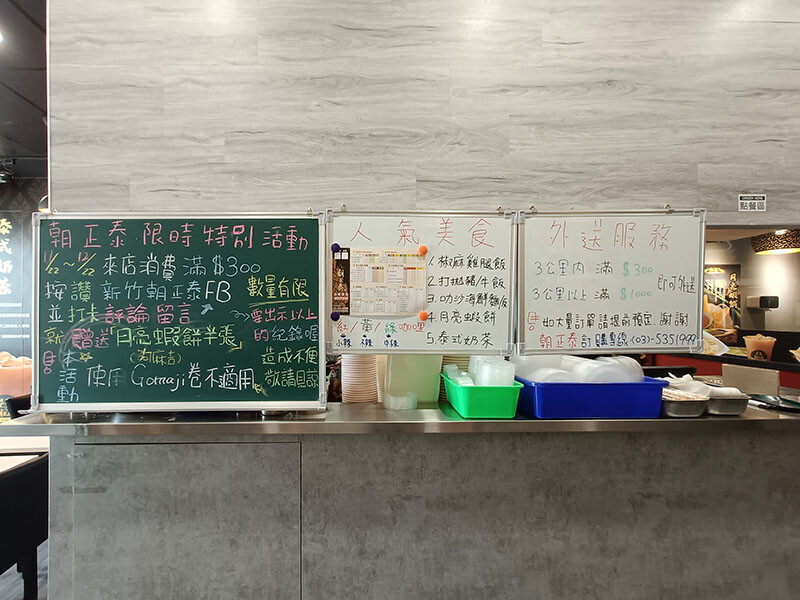 朝正泰 限時特別活動
11/22~12/22 來店消費滿$300
按讚 新竹朝正泰FB 數量有限
並打卡評論留言 → 要出示以上
就贈送月亮蝦餅半張 的紀錄喔
(為麻吉) 造成不便
本活動 使用 Gomaji卷不適用 敬請見諒
人氣美食
1.椒麻雞腿飯
2.打拋豬/牛飯
3.叻沙海鮮麵飯
4.月亮蝦餅
5.泰式奶茶
紅/黃/綠咖哩
小辣 不辣 中辣
外送服務
3公里內 滿 $300
3公里以上 滿 $1000 即可外送
如大量訂單請提前預定, 謝謝
朝正泰訂購專線 (03)-5351999
ORDER HERE
點餐區